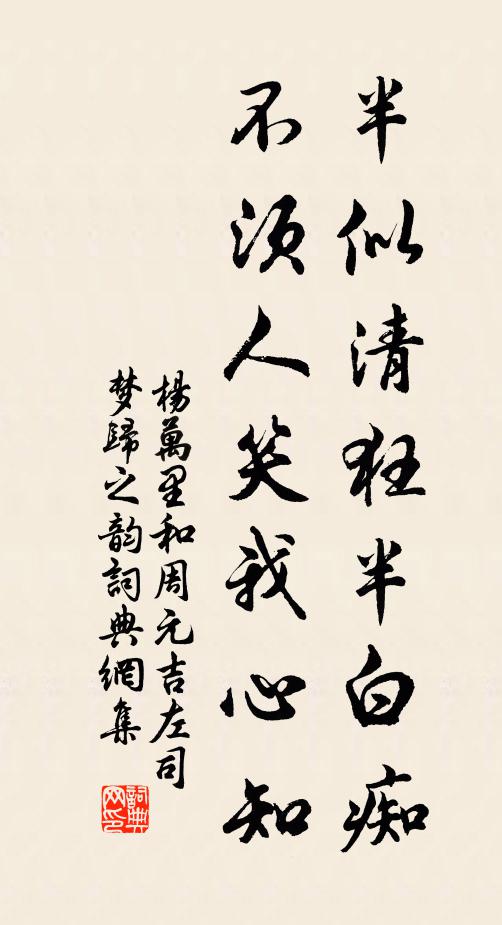 半似清狂半白痴
不须人笑我心知
楊萬里和周元吉左司
梦歸之韵詞典網集
詞典网印